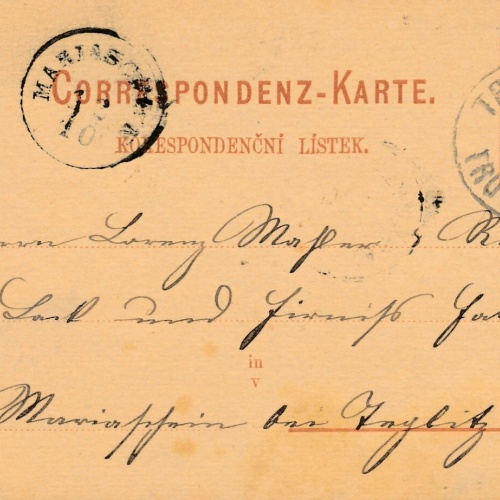 MARIASCHEIN
CORRESPONDENZ-KARTE.
KORESPONDENČNÍ LÍSTEK.
TR
TRU
ern Lorenz Mahler & R
Lack und Firniss Fa
in
v
Mariaschein bei Teplitz